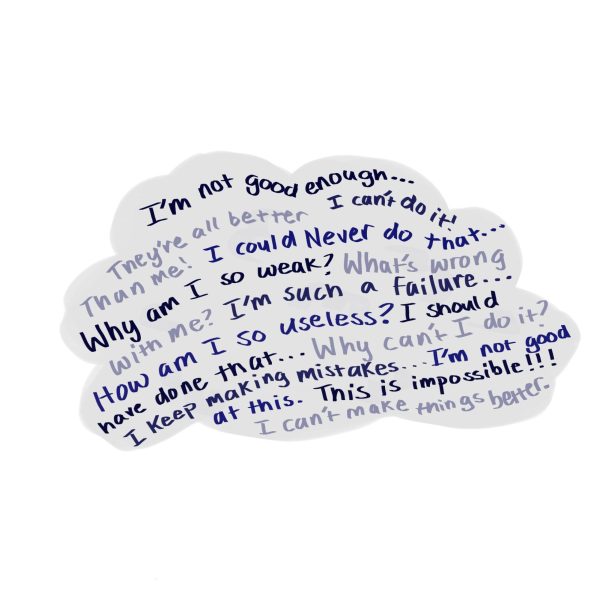 I'm not good enough...
I can't do it!
They're all better
Than me!
I could Never do that...
Why am I so weak?
What's wrong
with me?
I'm such a failure...
How am I so useless?
I should
have done that...
Why can't I do it?
I keep making mistakes...
I'm not good
at this.
This is impossible!!!
I can't make things better.